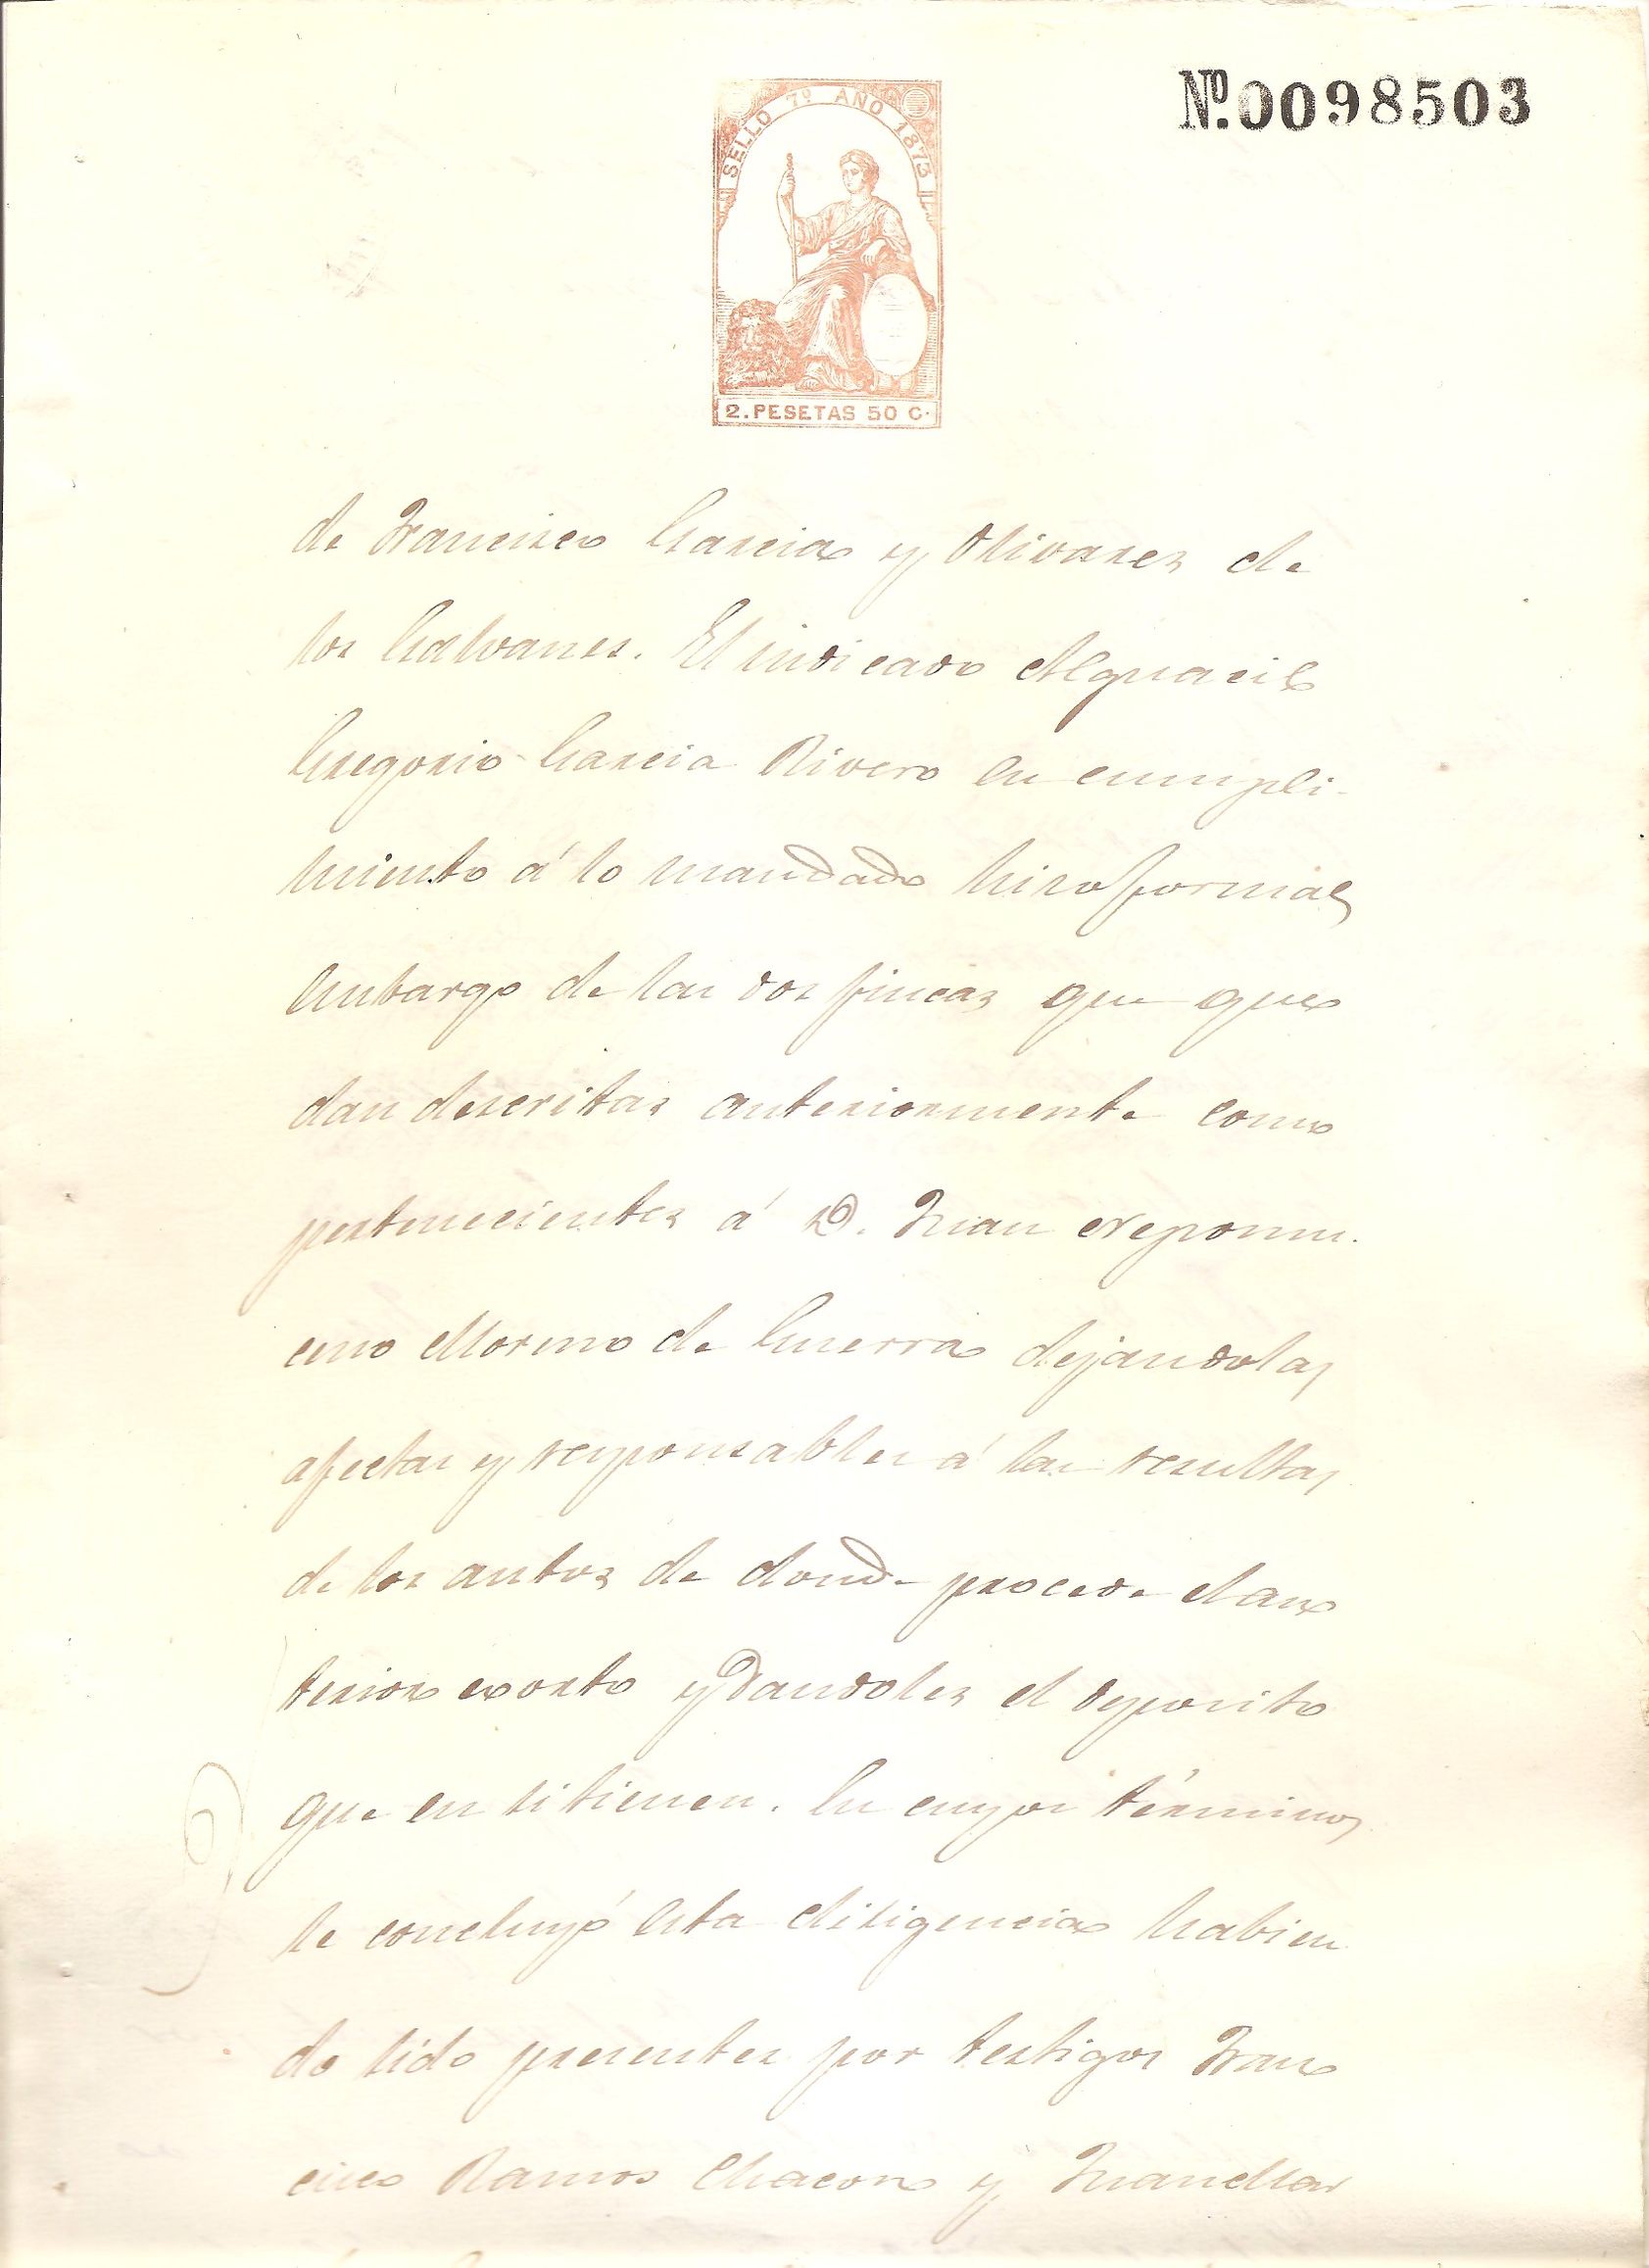 Nº.0098503
SELLO 7º AÑO 1873
2. PESETAS 50 C.
de Francisco Garcia y Olivares de
los Galvanes. El indicado Alguacil
Gregorio Garcia Rivero en cumpli-
miento á lo mandado hizo formal
embargo de las dos fincas que que
dan descritas anteriormente como
pertenecientes á D. Juan Nepomu.
ceno Moreno de Guerra dejandolas
afectas y responsables á las resultas
de los autos de donde procede el an
terior exorto y dandoles el deposito
que en si tienen. En cuyos términos
se concluyó esta diligencia habien
do sido presentes por testigos Fran
cisco Ramos Chacon y Juan Mar